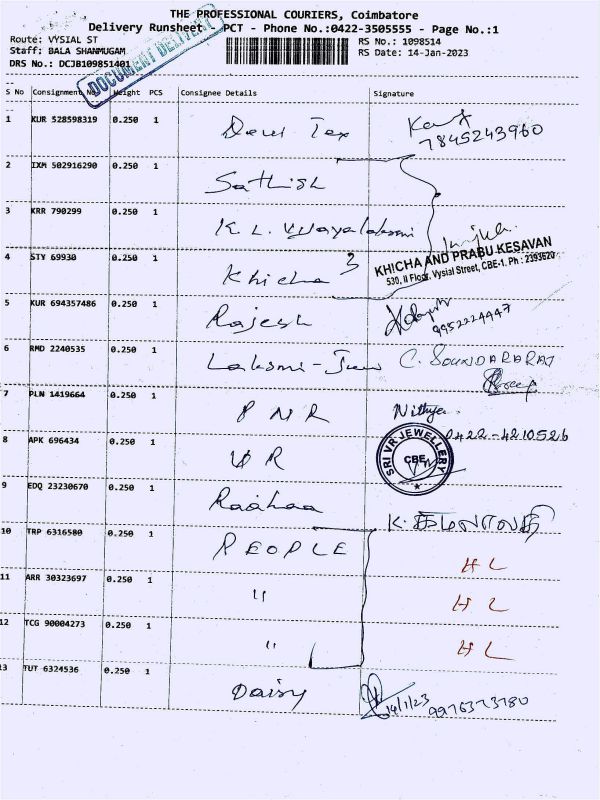 THE PROFESSIONAL COURIERS, Coimbatore
Delivery Runsheet - PCT - Phone No.:0422-3505555 - Page No.:1
Route: VYSIAL ST
RS No.: 1098514
Staff: BALA SHANMUGAM
RS Date: 14-Jan-2023
DRS No.: DCJB109851401
DOCUMENT DELIVERY
S No Consignment No Weight PCS Consignee Details Signature
1 KUR 528598319 0.250 1 Devi Tex
7845243960
2 IXM 502916290 0.250 1 Sathish
3 KRR 790299 0.250 1 K. L. Vijayalakshmi
4 STY 69930 0.250 1 Khicha 3
KHICHA AND PRABU KESAVAN
530, II Floor, Vysial Street, CBE-1. Ph : 2393620
5 KUR 694357486 0.250 1 Rajesh
9952224947
6 RMD 2240535 0.250 1 Lakshmi - C. SOUNDARARAJ
7 PLN 1419664 0.250 1 PNR Nithya
0422-4210526
8 APK 696434 0.250 1 VR
SRI VR JEWELLERY
CBE
9 EDQ 23230670 0.250 1 Raahaa
10 TRP 6316580 0.250 1 PEOPLE HL
11 ARR 30323697 0.250 1 " HL
12 TCG 90004273 0.250 1 " HL
13 TUT 6324536 0.250 1 Daisy
14/1/23 9976373780